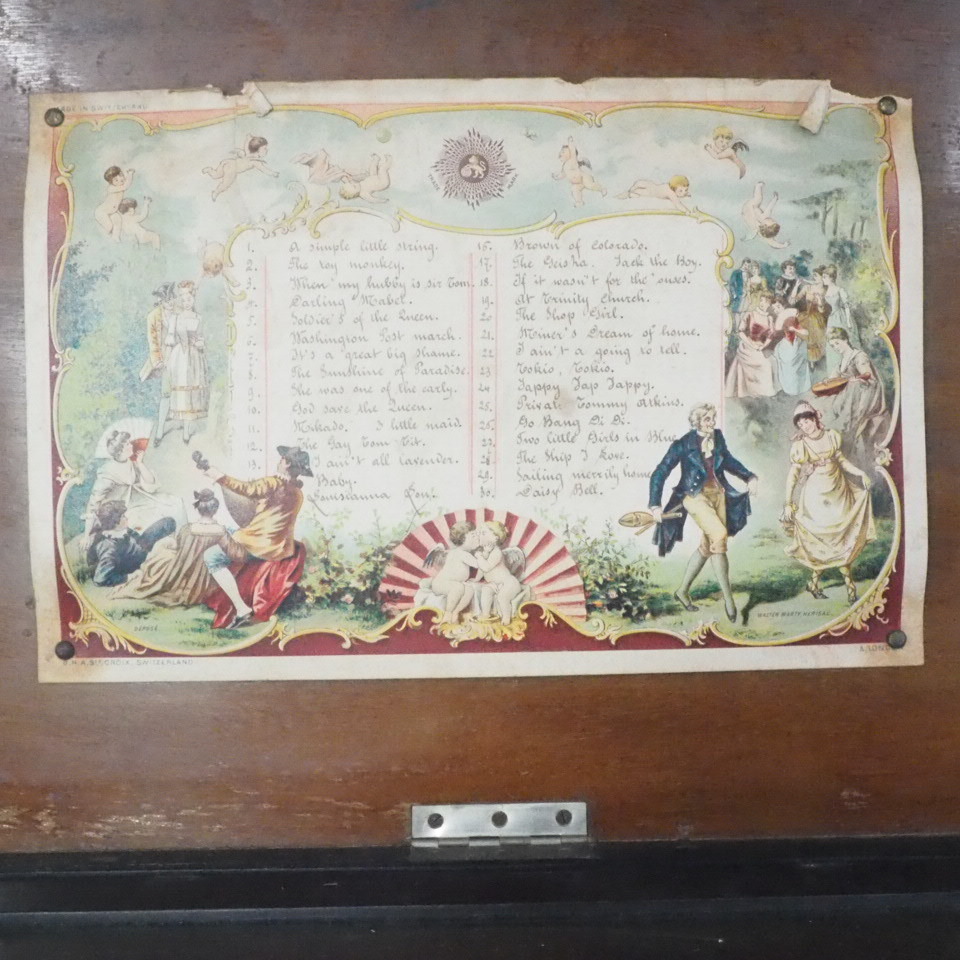 MADE IN SWITZERLAND
TRADE MARK
1. A simple little string.
2. The toy monkey.
3. When my hubby is sir Tom.
4. Darling Mabel.
5. Soldier's of the Queen.
6. Washington Post march.
7. It's a great big shame.
8. The Sunshine of Paradise.
9. She was one of the early.
10. God save the Queen.
11. Mikado. 3 little maid.
12. The Gay Tom-Tit.
13. I ain't all lavender.
Baby.
Louisianna Lou.
16. Brown of Colorado.
17. The Geisha. Jack the Boy.
18. If it wasn't for the 'ouses.
19. At Trinity Church.
20 The Shop Girl.
21. Miner's Dream of home.
22 I ain't a going to tell.
23 Tokio, Tokio.
24 Tappy Tap Tappy.
25. Private Tommy Atkins.
26. Go Bang Di Di.
27. Two little Girls in Blue
28 The Ship I Love.
29. Sailing merrily home
30. Daisy Bell.
DEPOSÉ
B.H.A. STE CROIX, SWITZERLAND